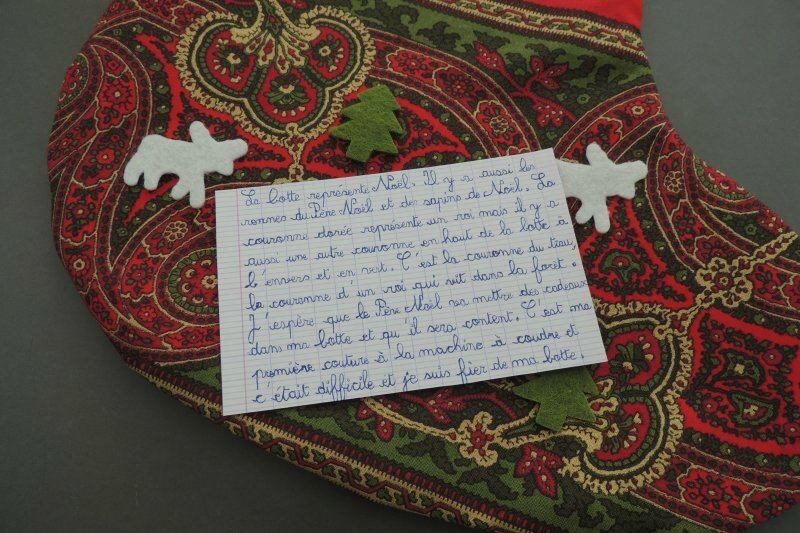 La botte représente Noël. Il y a aussi les
rennes du Père Noël et des sapins de Noël. La
couronne dorée représente un roi mais il y a
aussi une autre couronne en haut de la botte à
l'envers et en vert. C'est la couronne du tissu,
la couronne d'un roi qui vit dans la forêt.
J'espère que le Père Noël va mettre des cadeaux
dans ma botte et qu'il sera content. C'est ma
première couture à la machine à coudre et
c'était difficile et je suis fier de ma botte.